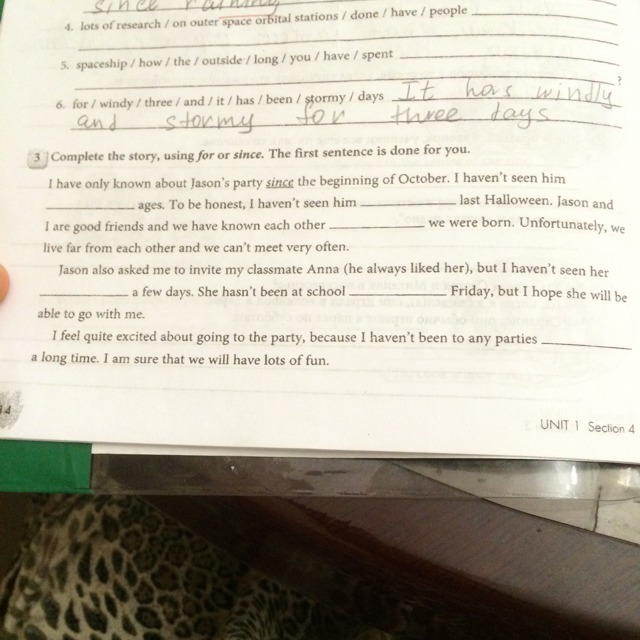 since raining
4. lots of research / on outer space orbital stations / done / have / people
5. spaceship / how / the / outside / long / you / have / spent
?
6. for / windy / three / and / it / has / been / stormy / days It has windly
and stormy for three days
3 Complete the story, using for or since. The first sentence is done for you.
I have only known about Jason's party since the beginning of October. I haven't seen him
____________ ages. To be honest, I haven't seen him ____________ last Halloween. Jason and
I are good friends and we have known each other ____________ we were born. Unfortunately, we
live far from each other and we can't meet very often.
Jason also asked me to invite my classmate Anna (he always liked her), but I haven't seen her
____________ a few days. She hasn't been at school ____________ Friday, but I hope she will be
able to go with me.
I feel quite excited about going to the party, because I haven't been to any parties ____________
a long time. I am sure that we will have lots of fun.
14
UNIT 1 Section 4